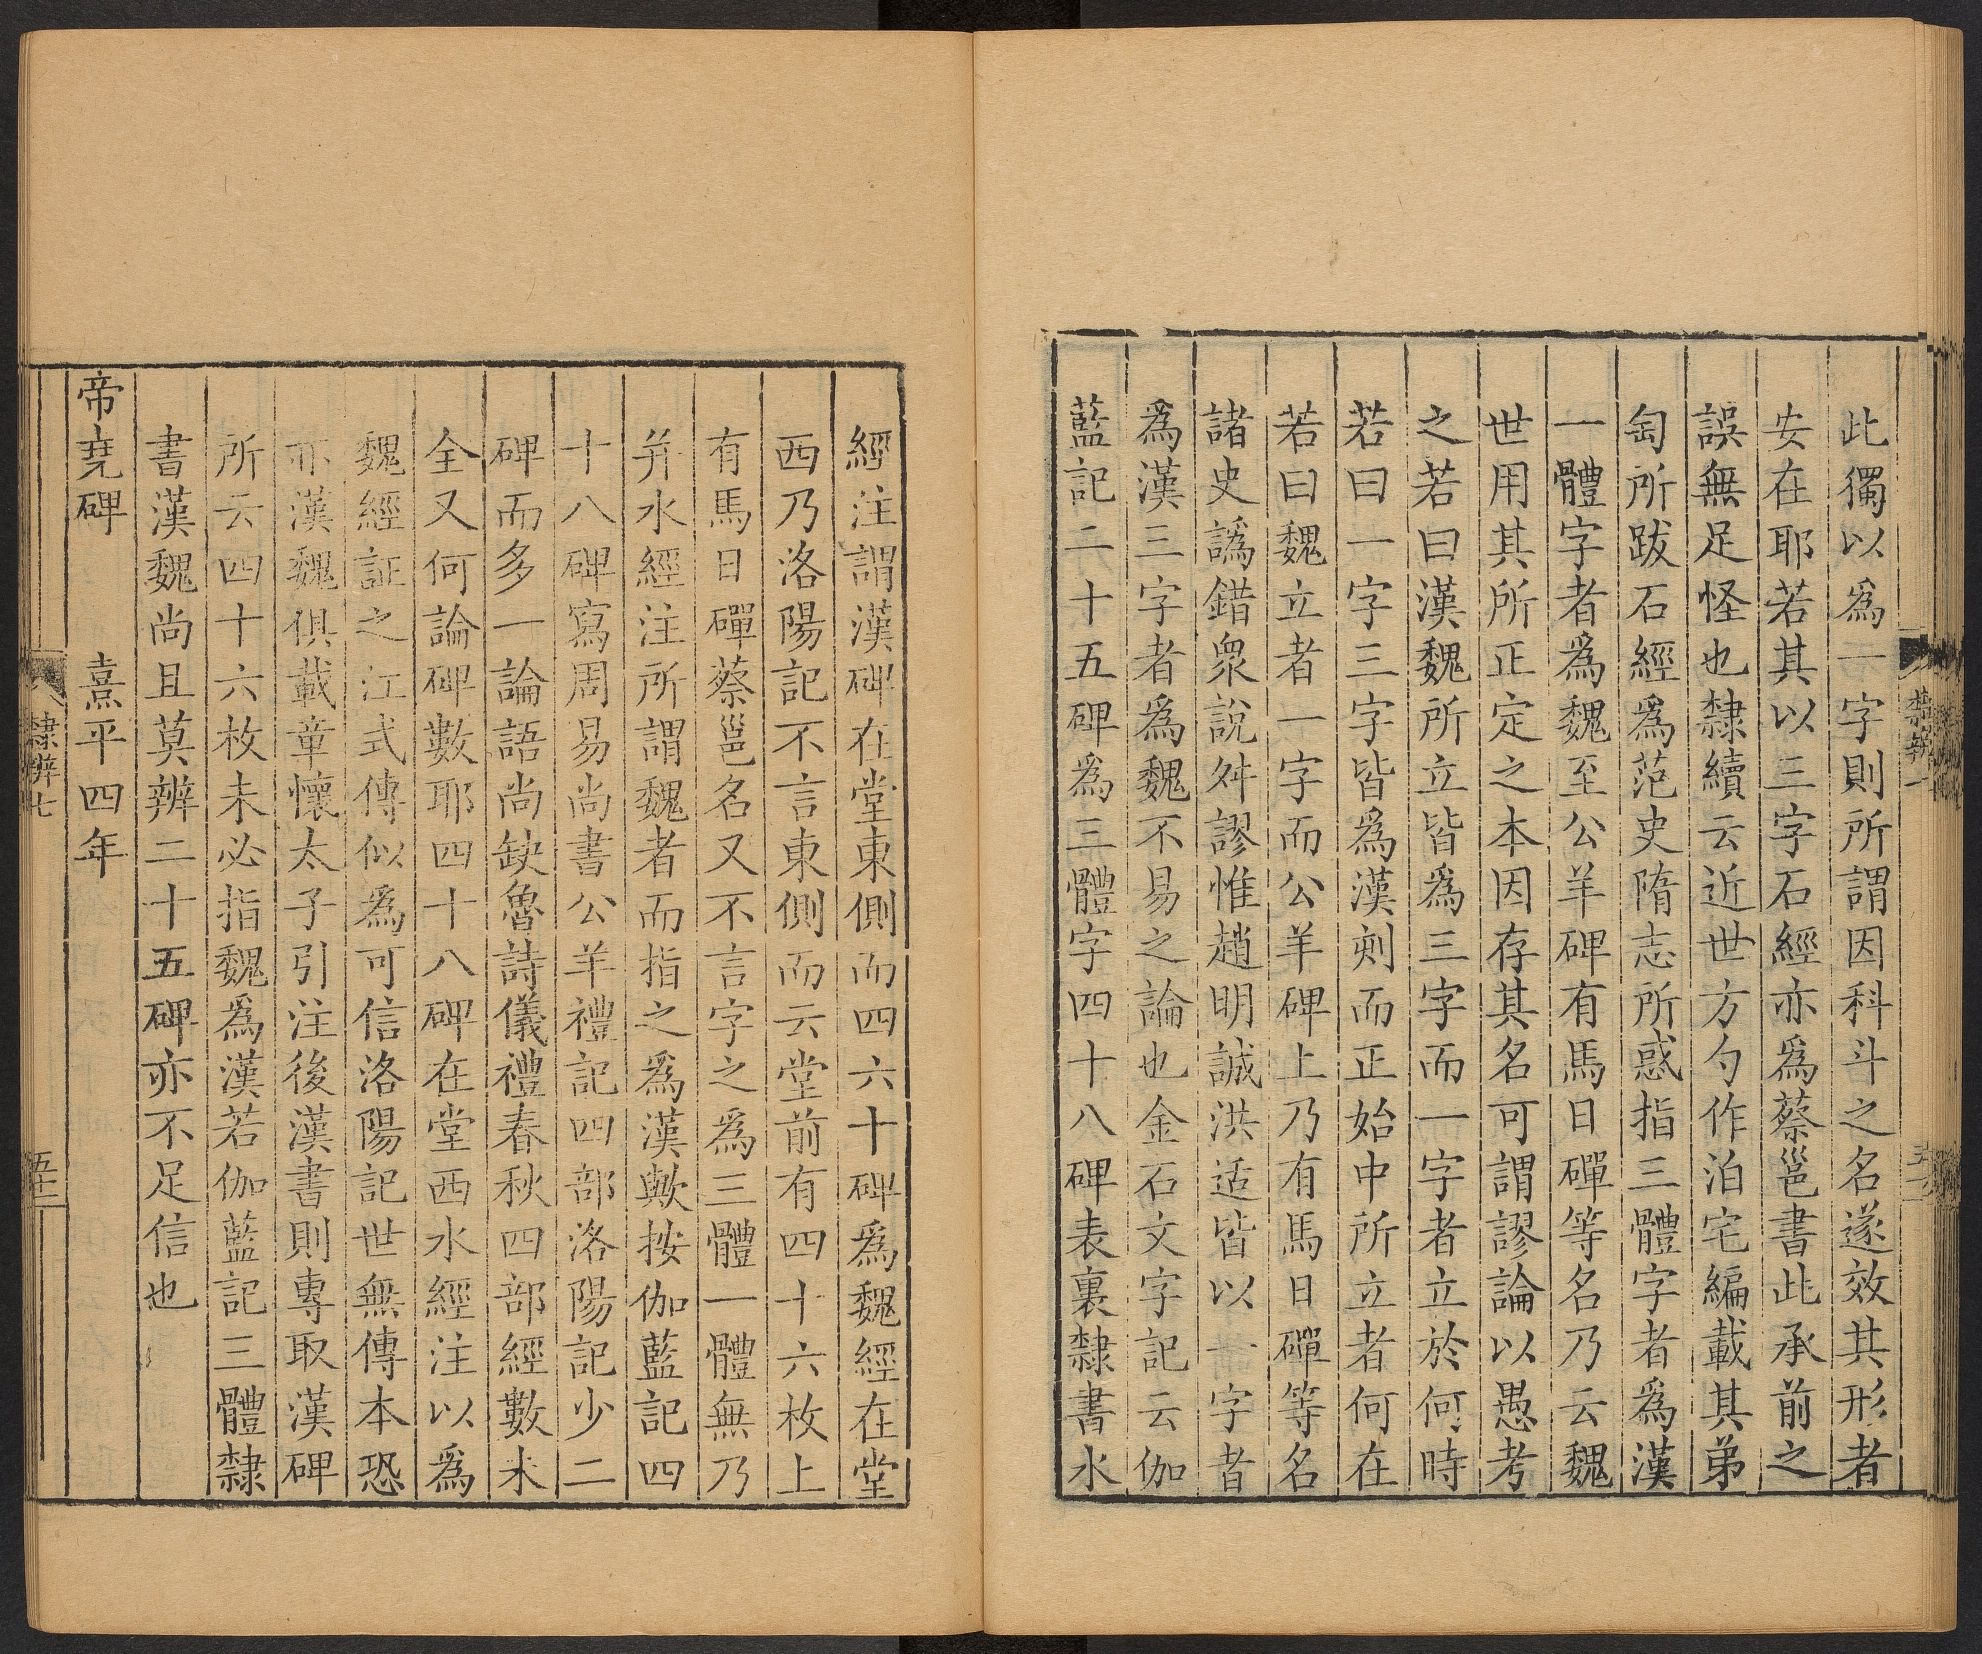 此獨以爲一字則所謂因科斗之名遂效其形者
安在耶若其以三字石經亦爲蔡邕書此承前之
誤無足怪也隸續云近世方勺作泊宅編載其弟
匋所跋石經爲范史隋志所惑指三體字者爲漢
一體字者爲魏至公羊碑有馬日磾等名乃云魏
世用其所正定之本因存其名可謂謬論以愚考
之若曰漢魏所立皆爲三字而一字者立於何時
若曰一字三字皆爲漢刻而正始中所立者何在
若曰魏立者一字而公羊碑上乃有馬日磾等名
諸史譌錯衆說舛謬惟趙明誠洪适皆以一字者
爲漢三字者爲魏不易之論也金石文字記云伽
藍記二十五碑爲三體字四十八碑表裏隸書水
經注謂漢碑在堂東側而四六十碑爲魏經在堂
西乃洛陽記不言東側而云堂前有四十六枚上
有馬日磾蔡邕名又不言字之爲三體一體無乃
并水經注所謂魏者而指之爲漢歟按伽藍記四
十八碑寫周易尚書公羊禮記四部洛陽記少二
碑而多一論語尚缺魯詩儀禮春秋四部經數未
全又何論碑數耶四十八碑在堂西水經注以爲
魏經証之江式傳似爲可信洛陽記世無傳本恐
亦漢魏俱載章懷太子引注後漢書則專取漢碑
所云四十六枚未必指魏爲漢若伽藍記三體隸
書漢魏尚且莫辨二十五碑亦不足信也
帝堯碑　熹平四年
隸辨七